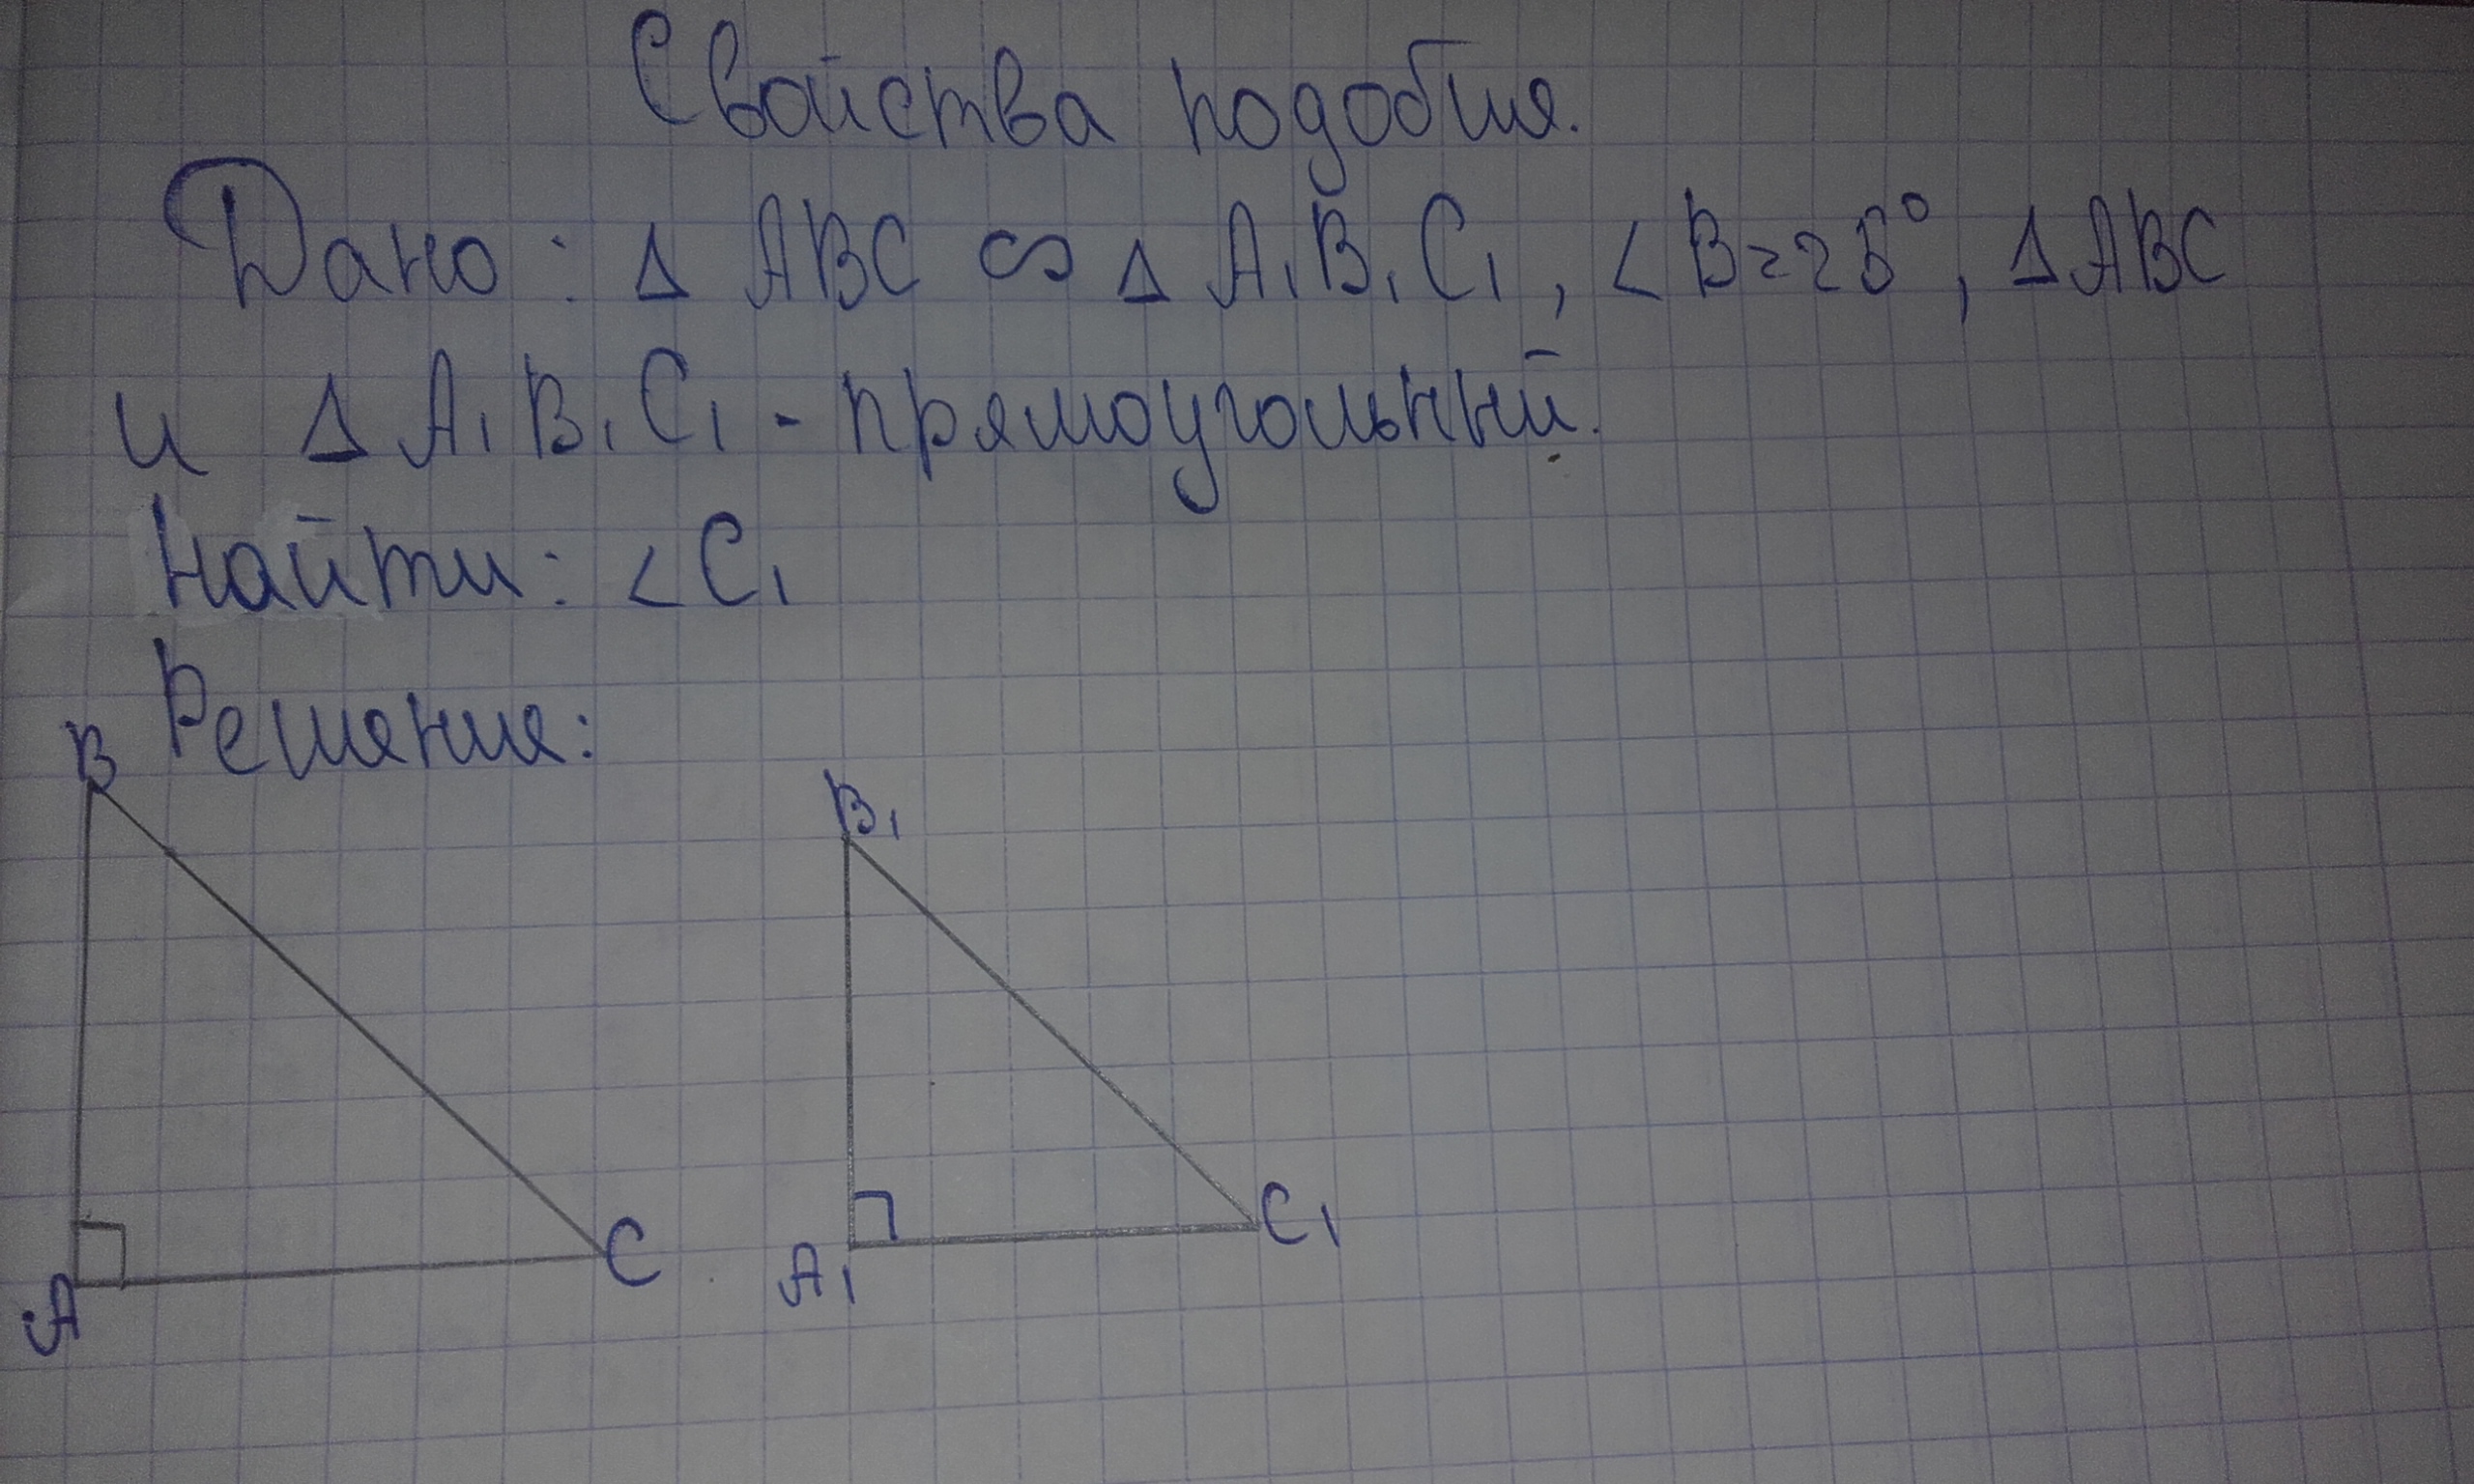 Свойства подобия.
Дано: Δ ABC ∞ Δ A₁B₁C₁, ∠B=25°, Δ ABC
и Δ A₁B₁C₁ - прямоугольный.
Найти: ∠C₁
Решение:
B
B₁
C
C₁
A
A₁